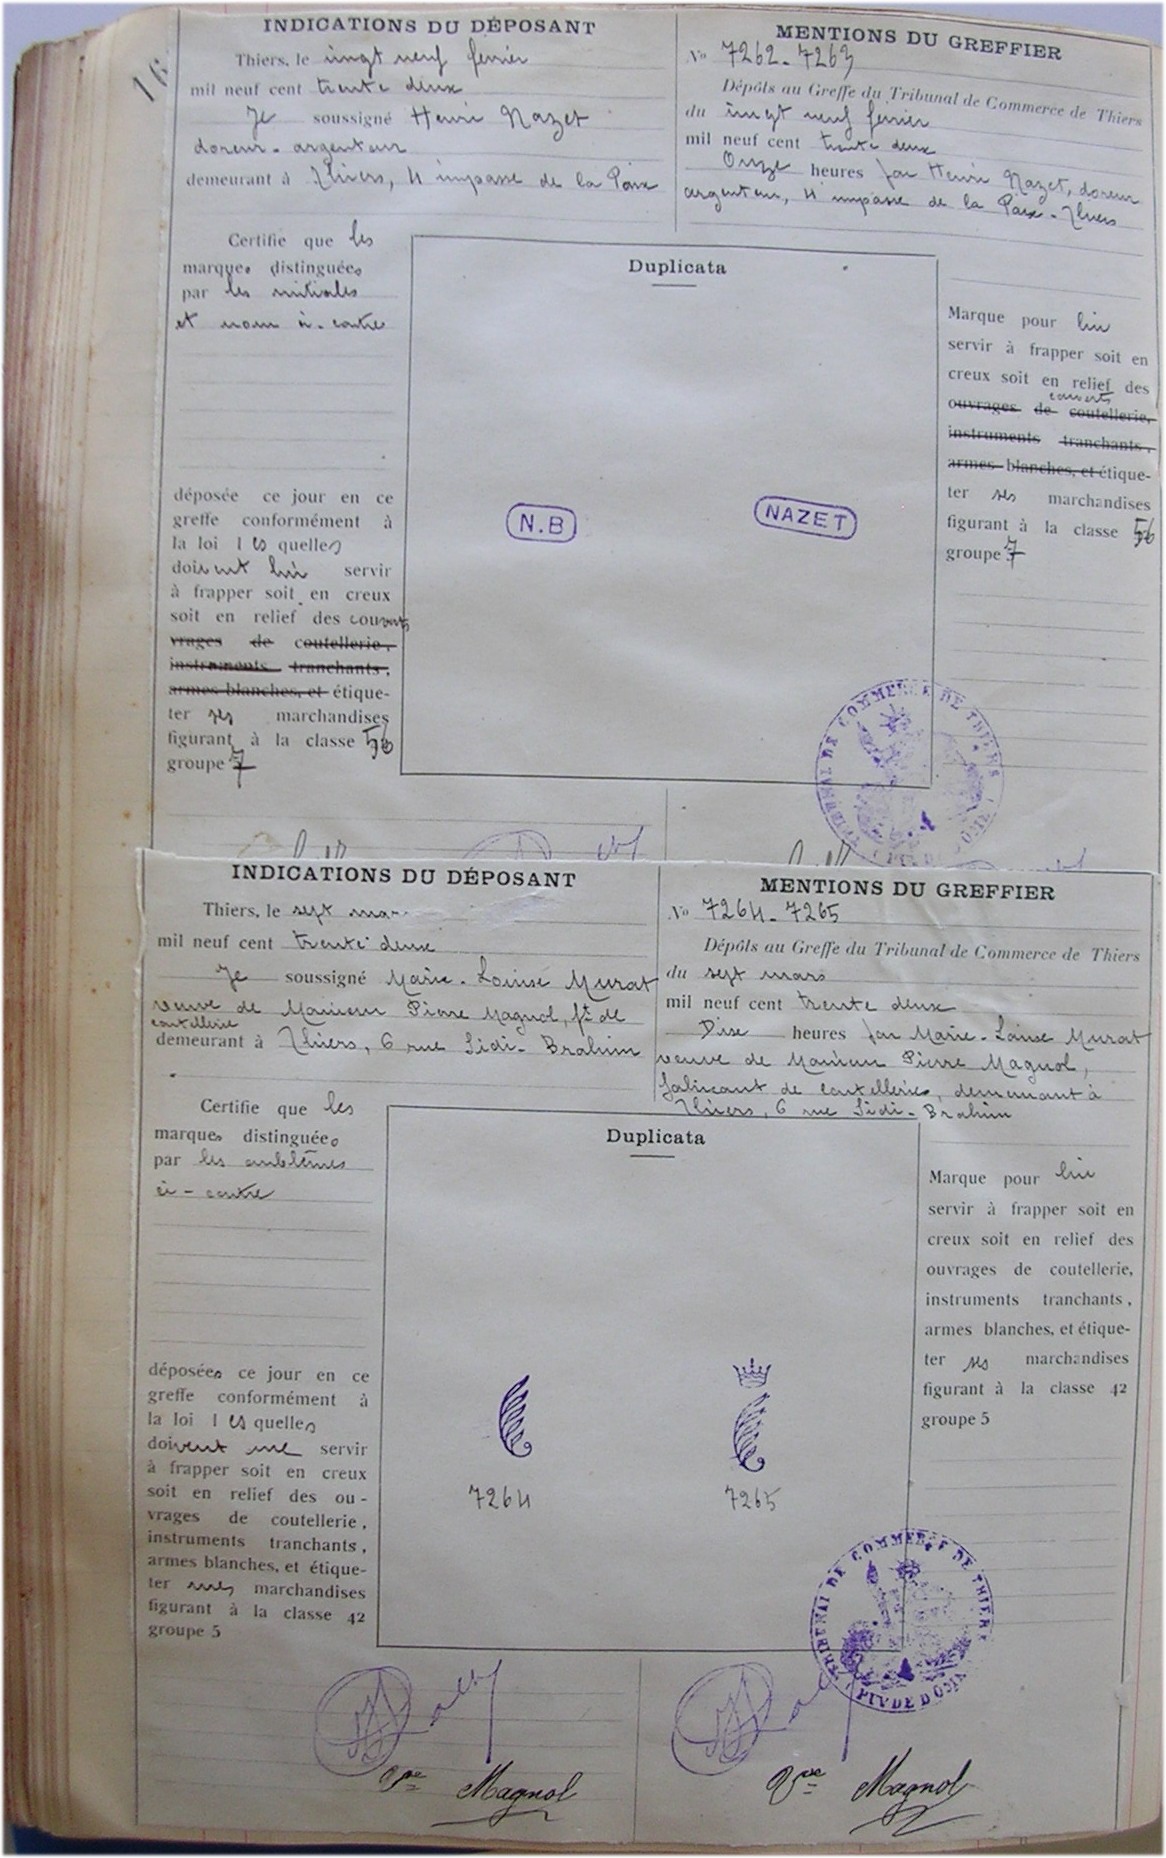 16
INDICATIONS DU DÉPOSANT
Thiers, le vingt neuf février
mil neuf cent trente deux
Je soussigné Henri Nazet
doreur - argenteur
demeurant à Thiers, 4 impasse de la Paix
Certifie que les
marques distinguées
par les initiales
et nom ci-contre
déposée ce jour en ce
greffe conformément à
la loi les quelles
doivent lui servir
à frapper soit en creux
soit en relief des couverts
vrages de coutellerie,
instruments tranchants,
armes blanches, et étique-
ter ses marchandises
figurant à la classe 56
groupe 7
MENTIONS DU GREFFIER
No 7262-7263
Dépôts au Greffe du Tribunal de Commerce de Thiers
du vingt neuf février
mil neuf cent trente deux
Onze heures par Henri Nazet, doreur
argenteur, 4 impasse de la Paix - Thiers
Duplicata
N.B
NAZET
Marque pour lui
servir à frapper soit en
creux soit en relief des
couverts
ouvrages de coutellerie,
instruments tranchants,
armes blanches, et étique-
ter ses marchandises
figurant à la classe 56
groupe 7
TRIBUNAL DE COMMERCE DE THIERS
INDICATIONS DU DÉPOSANT
Thiers, le sept mars
mil neuf cent trente deux
Je soussigné Marie-Louise Murat
veuve de Monsieur Pierre Magnol, ft de
coutellerie
demeurant à Thiers, 6 rue Sidi-Brahim
Certifie que les
marques distinguées
par les emblèmes
ci-contre
déposées ce jour en ce
greffe conformément à
la loi les quelles
doivent me servir
à frapper soit en creux
soit en relief des ou-
vrages de coutellerie,
instruments tranchants,
armes blanches, et étique-
ter mes marchandises
figurant à la classe 42
groupe 5
MENTIONS DU GREFFIER
No 7264-7265
Dépôts au Greffe du Tribunal de Commerce de Thiers
du sept mars
mil neuf cent trente deux
Dix heures par Marie-Louise Murat
veuve de Monsieur Pierre Magnol,
fabricant de coutellerie, demeurant à
Thiers, 6 rue Sidi-Brahim
Duplicata
7264
7265
Marque pour lui
servir à frapper soit en
creux soit en relief des
ouvrages de coutellerie,
instruments tranchants,
armes blanches, et étique-
ter ses marchandises
figurant à la classe 42
groupe 5
TRIBUNAL DE COMMERCE DE THIERS
PUY DE DOME
Vve Magnol
Vve Magnol